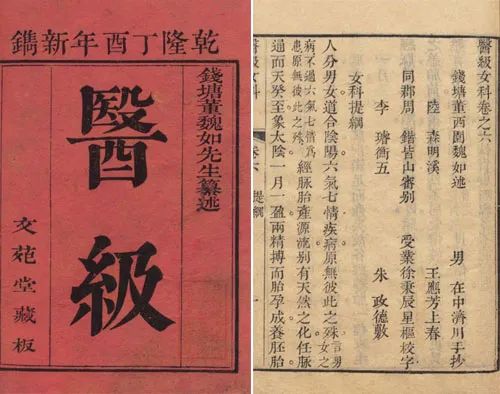 乾隆丁酉年新鐫
錢塘董魏如先生纂述
醫級
文苑堂藏板
醫級女科卷之六
錢塘董西園魏如述
男 在中濟川手抄
陸 森明溪
王應芳上春
同郡周 鍇皆山審别
受業徐秉辰星樞校字
李 璿衡五
朱 政德敷
女科提綱
人分男女道合陰陽六氣七情疾病原無彼此之殊言男女之
病不過六氣七情爲
患原無彼此之殊
經脉胎產源流别有天然之化任脉
通而天癸至象太陰一月一盈兩精摶而胎孕成養胚胎
醫級女科
卷六
提綱
一